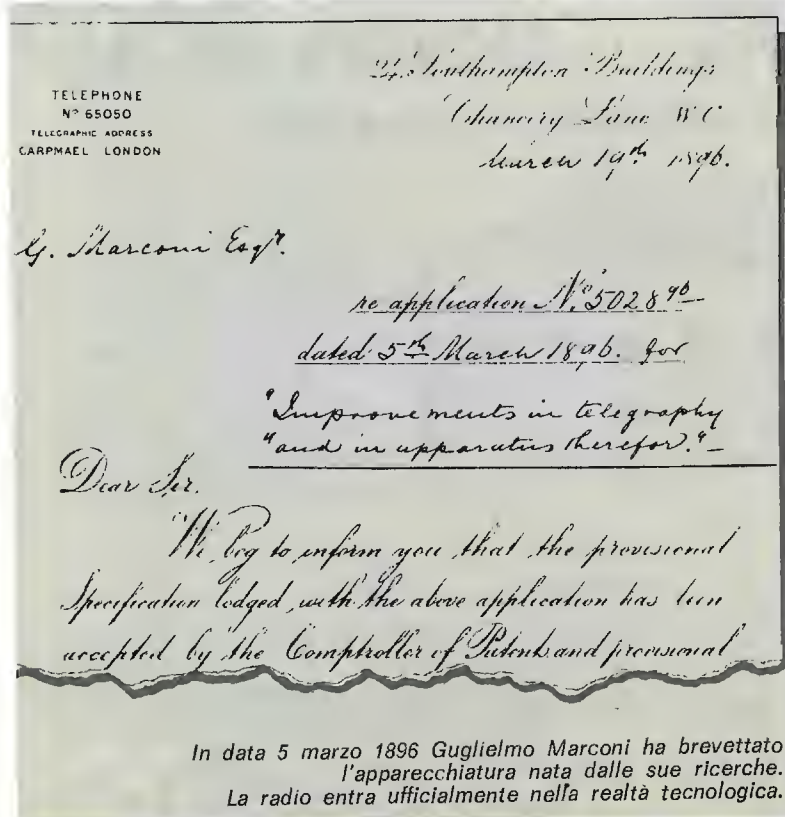 TELEPHONE
Nº 65050
TELEGRAPHIC ADDRESS
CARPMAEL LONDON
24. Southampton Buildings
Chancery Lane W C
March 19th 1896.
G. Marconi Esqr.
re application No. 5028 96
dated 5th March 1896. for
"Improvements in telegraphy
"and in apparatus therefor."
Dear Sir.
We beg to inform you that the provisional
Specification lodged with the above application has been
accepted by the Comptroller of Patents and provisional
In data 5 marzo 1896 Guglielmo Marconi ha brevettato
l'apparecchiatura nata dalle sue ricerche.
La radio entra ufficialmente nella realtà tecnologica.